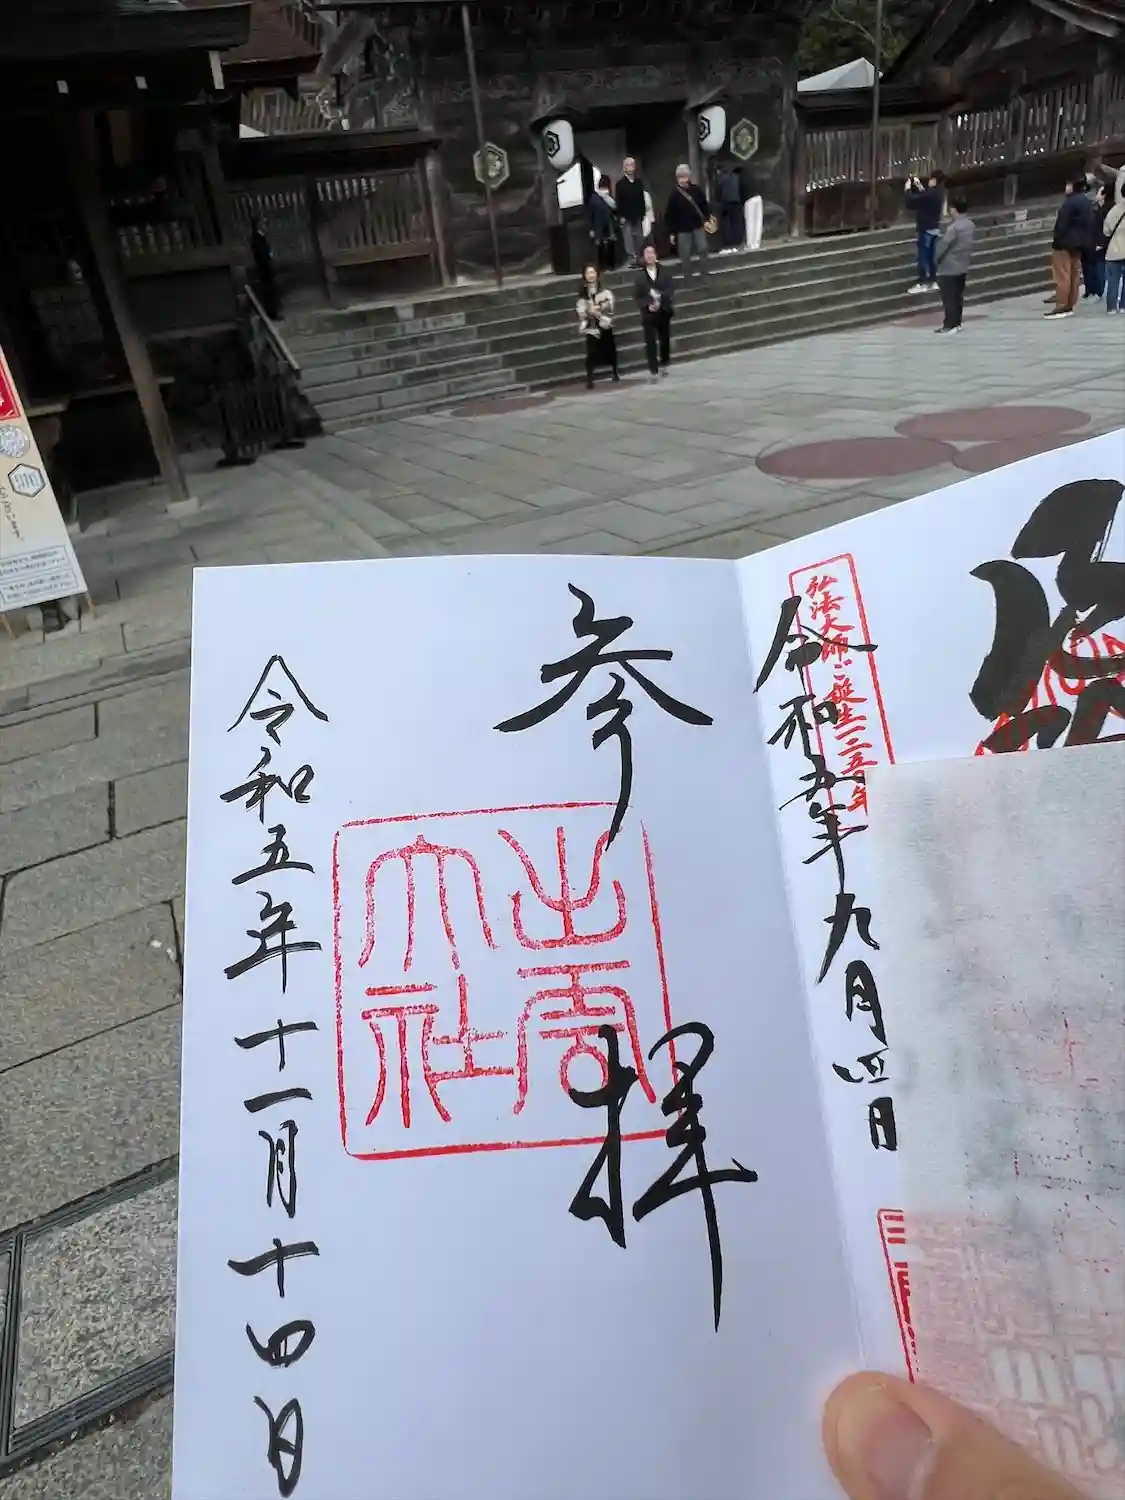 弘法大師ご誕生一二五〇年
令和五年九月四日
参拝
出雲
大社
令和五年十一月十四日